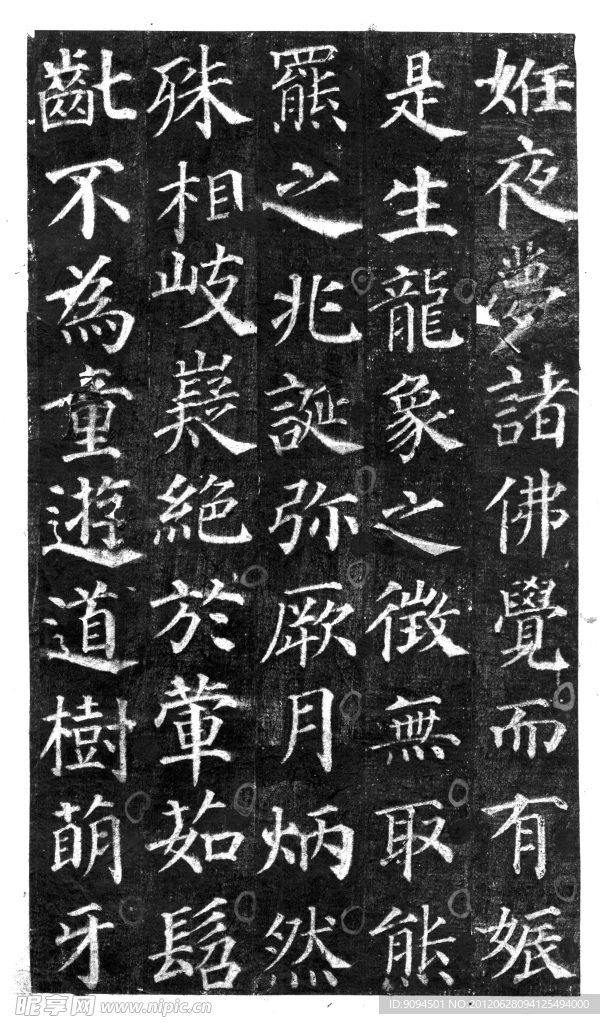 姙夜夢諸佛覺而有娠
是生龍象之徵無取熊
羆之兆誕弥厥月炳然
殊相岐嶷絕於葷茹髫
齔不為童遊道樹萌牙
昵享网 www.nipic.cn
ID:9094501 NO:20120628094125494000